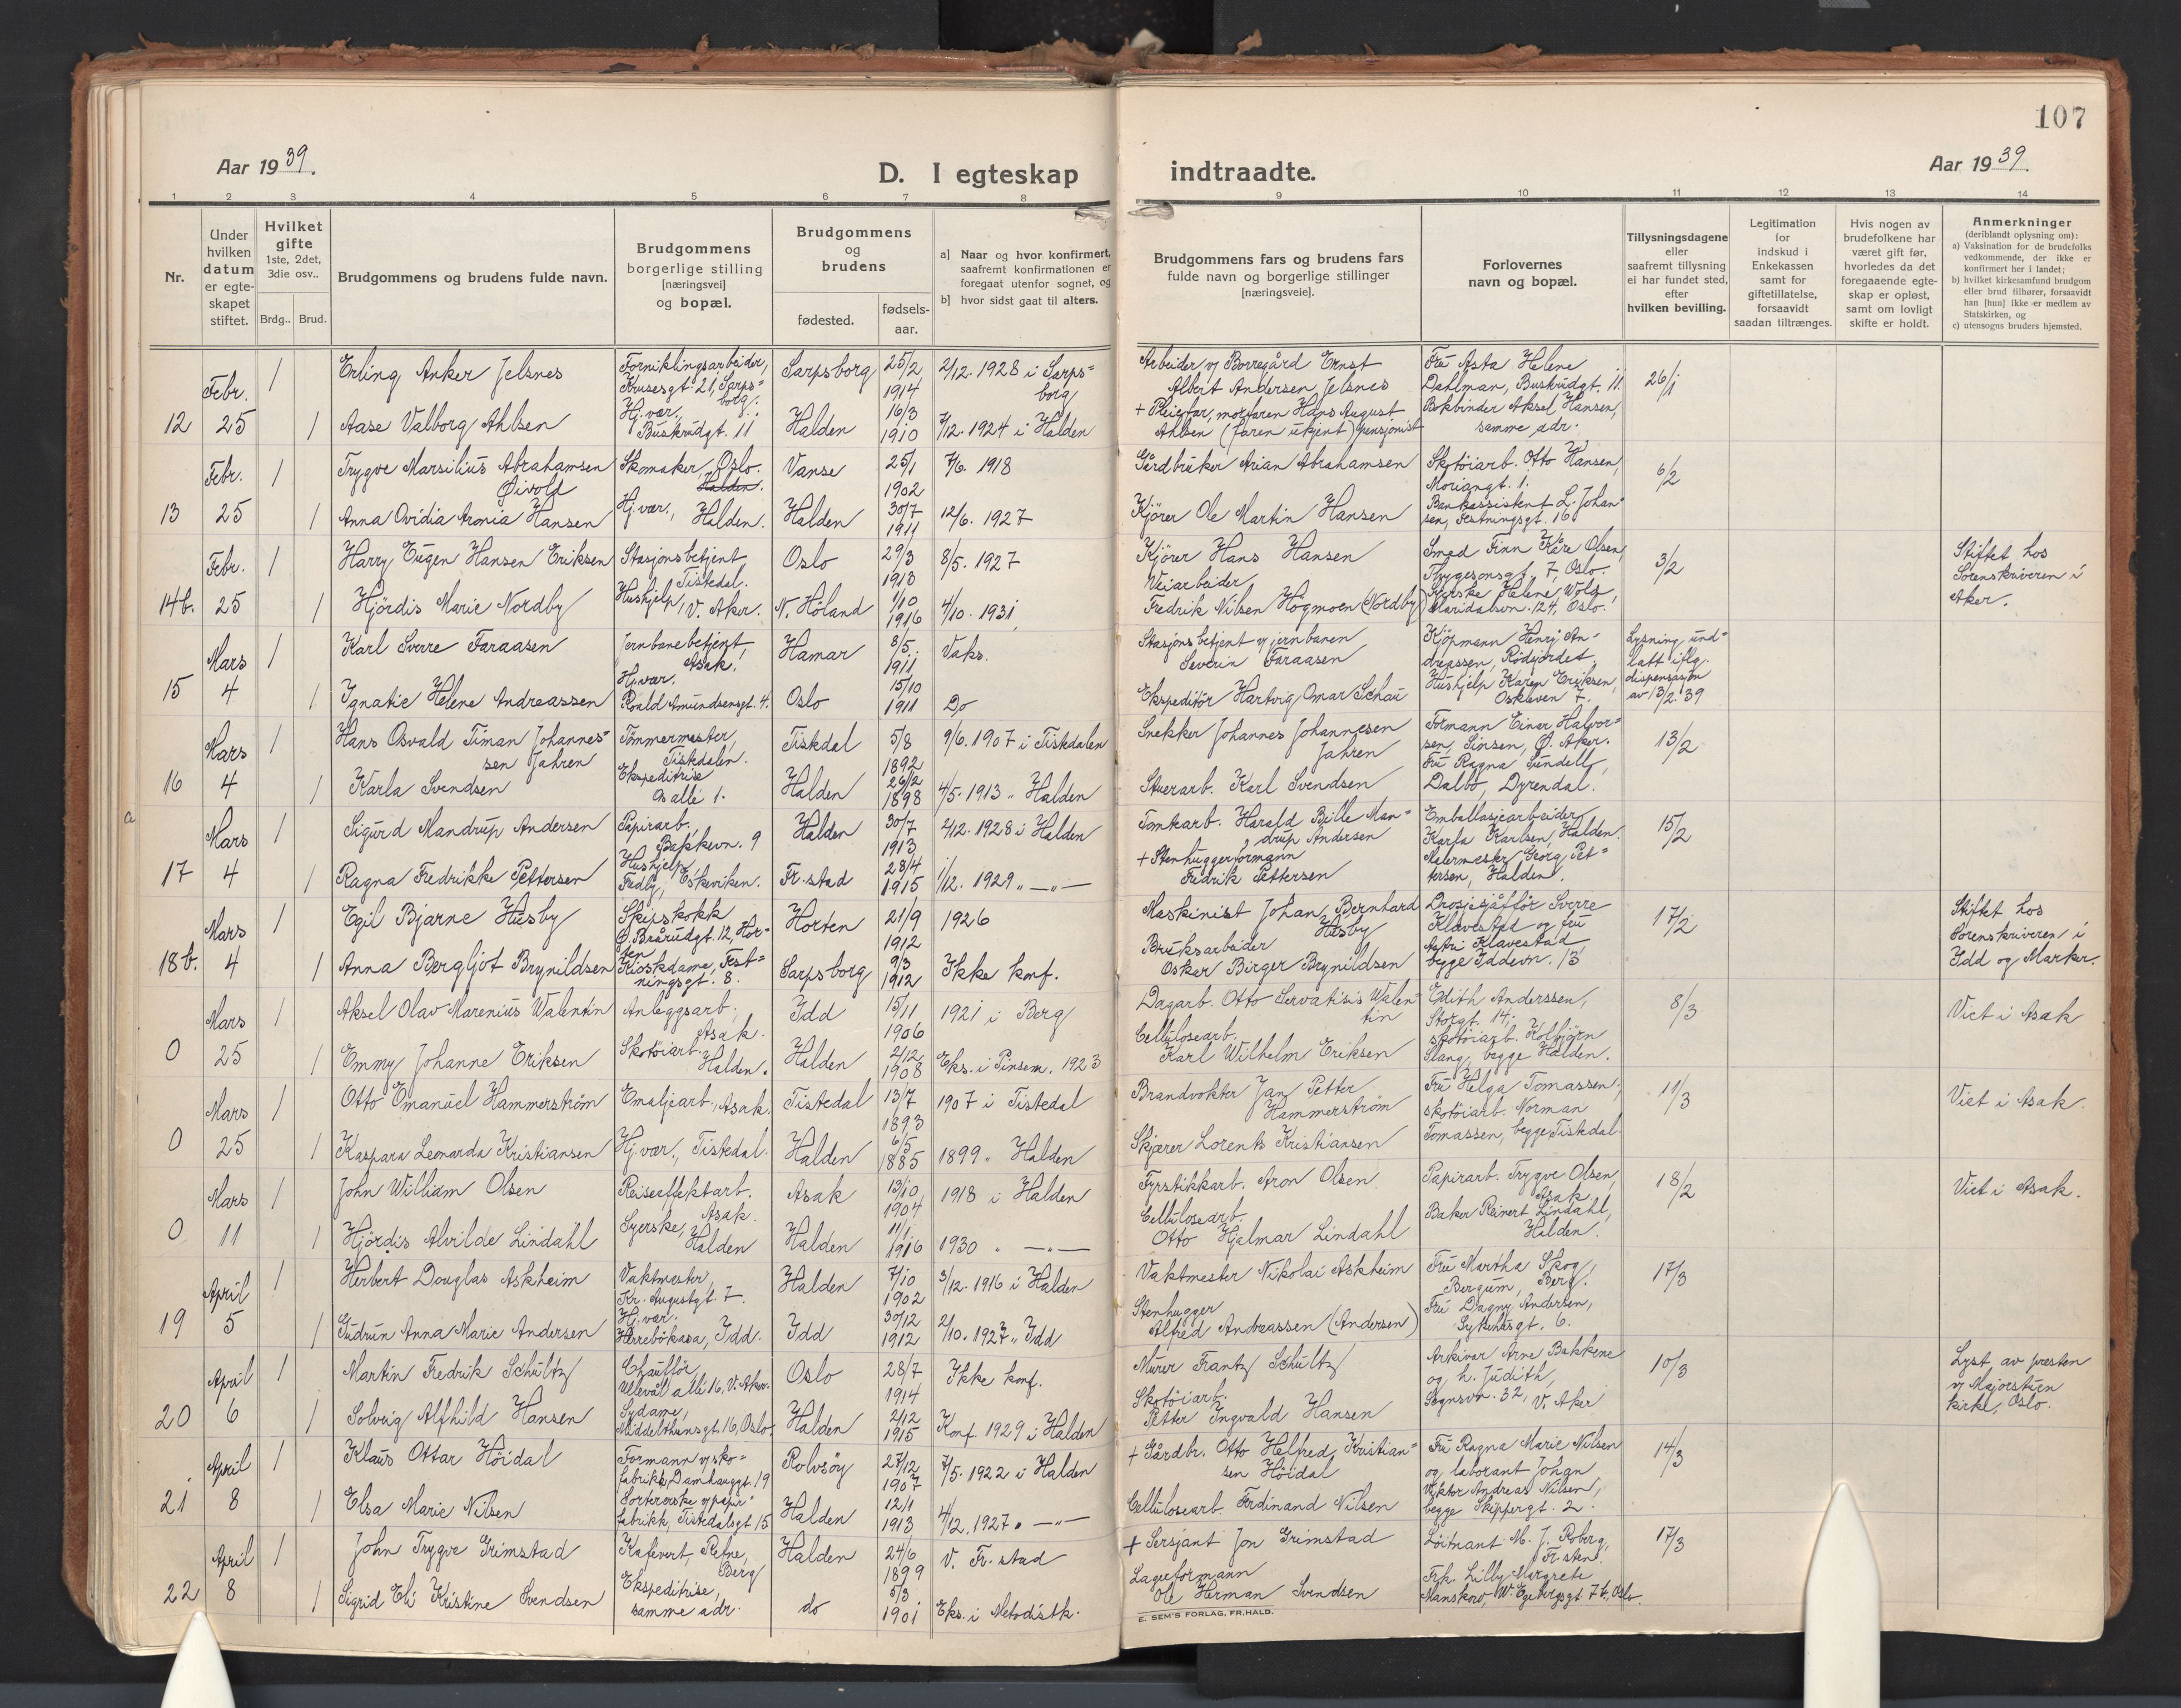 107
Aar 1939.
D. I egteskap indtraadte.
Aar 1939.
1 2 3 4 5 6 7 8 9 10 11 12 13 14
Nr.
Under hvilken datum er egteskapet stiftet.
Hvilket gifte 1ste, 2det, 3die osv..
Brdg.. Brud.
Brudgommens og brudens fulde navn.
Brudgommens borgerlige stilling [næringsvei] og bopæl.
Brudgommens og brudens
fødested.
fødsels-aar.
a] Naar og hvor konfirmert, saafremt konfirmationen er foregaat utenfor sognet, og
b] hvor sidst gaat til alters.
Brudgommens fars og brudens fars fulde navn og borgerlige stillinger [næringsveie].
Forlovernes navn og bopæl.
Tillysningsdagene eller saafremt tillysning ei har fundet sted, efter hvilken bevilling.
Legitimation for indskud i Enkekassen samt for giftetillatelse, forsaavidt saadan tiltrænges.
Hvis nogen av brudefolkene har været gift før, hvorledes da det foregaaende egteskap er opløst, samt om lovligt skifte er holdt.
Anmerkninger (deriblandt oplysning om):
a) Vaksination for de brudefolks vedkommende, der ikke er konfirmert her i landet;
b) hvilket kirkesamfund brudgom eller brud tilhører, forsaavidt han [hun] ikke er medlem av Statskirken, og
c) utensogns bruders hjemsted.
12 Febr. 25
1 Erling Anker Jelsnes Forniklingsarbeider, Krusesgt. 21, Sarpsborg. Sarpsborg 25/2 1914 2/12. 1928 i Sarpsborg
Arbeider v/ Borregård Ernst Albert Andersen Jelsnes Fru Asta Helene Dahlman, Buskrudgt. 11. 26/1
1 Aase Valborg Ahlsen Hj. vær., Buskrudgt. 11 Halden 16/3 1910 7/12. 1924 i Halden
+ Pleiefar, morfaren Hans August Ahlsen (faren ukjent) pensjonist Bokbinder Aksel Hansen, samme adr.
13 Febr. 25
1 Trygve Marsilius Abrahamsen Øivold Skomaker, Oslo. Halden. Vanse 25/1 1902 7/6. 1918
Gårdbruker Arian Abrahamsen Skotöiarb. Otto Hansen, Moriangt. 1. 6/2
1 Anna Ovidia Aronia Hansen Hj. vær., Halden. Halden 30/7 1911 12/6. 1927
Kjörer Ole Martin Hansen Bankassistent L. Johansen, Festningsgt. 16
14b. Febr. 25
1 Harry Eugen Hansen Eriksen Stasjonsbetjent Tistedal. Oslo 29/3 1913 8/5. 1927
Kjörer Hans Hansen Smed Finn Kåre Olsen, Trygesonsgt. 7, Oslo. 3/2 Stiftet hos Sorenskriveren i Aker.
1 Hjördis Marie Nordby Hushjelp, V. Aker. N. Höland 1/10 1916 4/10. 1931
Veiarbeider Fredrik Nilsen Högmoen (Nordby) Syerske Helene Wold, Maridalsvn. 124, Oslo.
15 Mars 4
1 Karl Sverre Faraasen Jernbanebetjent, Asak. Hamar 8/5 1911 Vaks.
Stasjonsbetjent v/ jernbanen Severin Faraasen Kjöpmann Henry Andreassen, Rödfjordet Lysning undlatt iflg. dispensasjon av 13/2. 39
1 Ignatie Helene Andreassen Hj. vær. Roald Amundsensgt. 4. Oslo 15/10 1911 Do
Ekspeditör Hartvig Omar Schau Hushjelp Karen Eriksen, Oskleven 7.
16 Mars 4
1 Hans Osvald Timan Johannessen Jahren Tömmermester, Tistedalen. Tistedal 5/8 1892 9/6. 1907 i Tistedalen
Snekker Johannes Johannesen Jahren Formann Einar Halvorsen, Sinsen, Ö. Aker. 13/2
1 Karla Svendsen Ekspeditrise Os allé 1. Halden 26/12 1898 4/5. 1913 „ Halden
Stuerarb. Karl Svendsen Fru Ragna Sundell, Dalbo, Dyrendal.
17 Mars 4
1 Sigurd Mandrup Andersen Papirarb. Bakkevn. 9 Halden 30/7 1913 2/12. 1928 i Halden
Tomtearb. Harald Bille Mandrup Andersen Emballasjearbeider Karfa Karlsen, Halden. 15/2
1 Ragna Fredrikke Pettersen Hushjelp Fredly, Eskeviken. Fr. stad 28/4 1915 1/12. 1929 „ — „ —
+ Stenhuggerformann Fredrik Pettersen Malermester Georg Pettersen, Halden.
18b. Mars 4
1 Egil Bjarne Husby Skipskokk Ö. Brårudgt. 12, Horten Horten 21/9 1912 1926
Maskinist Johan Bernhard Husby Drosjesjåför Sverre Klavestad og fru Astri Klavestad begge Iddevn. 13 17/2 Stiftet hos Sorenskriveren i Idd og Marker.
1 Anna Bergljot Brynildsen Kioskdame, Festningsgt. 8. Sarpsborg 9/3 1912 Ikke konf.
Bruksarbeider Oskar Birger Brynildsen
0 Mars 25
1 Aksel Olav Marenius Walentin Anleggsarb., Asak. Idd 15/11 1906 1921 i Berg
Dagarb. Otto Servatisis Walentin Edith Anderssen, Storgt. 14, 8/3 Viet i Asak
1 Emmy Johanne Eriksen Skotöiarb. Halden. Halden 2/12 1908 Eks. i Pinsem. 1923
Cellulosearb. Karl Wilhelm Eriksen skotöiarb. Kolbjörn Slang, begge Halden.
0 Mars 25
1 Otto Emanuel Hammerström Emaljearb., Asak. Tistedal 13/7 1893 1907 i Tistedal
Brandvokter Jan Petter Hammerström Fru Helga Tomassen, skotöiarb. Norman Tomassen, begge Tistedal. 11/3 Viet i Asak.
1 Kaspara Leonarda Kristiansen Hj. vær., Tistedal. Halden 6/5 1885 1899 „ Halden
Skjærer Lorents Kristiansen
0 Mars 11
1 John William Olsen Reiseeffektarb. Asak. Asak 13/10 1904 1918 i Halden
Fyrstikkarb. Aron Olsen Papirarb. Trygve Olsen, Asak 18/2 Viet i Asak.
1 Hjördis Alvilde Lindahl Syerske, Halden Halden 11/1 1916 1930 „ — „ —
Cellulosearb. Otto Hjalmar Lindahl Baker Reinert Lindahl, Halden.
19 April 5
1 Herbert Douglas Askheim Vaktmester, Kr. Augustgt. 7. Halden 7/10 1902 3/12. 1916 i Halden
Vaktmester Nikolai Askheim Fru Martha Skog, Bergum, Berg. 17/3
1 Gudrun Anna Marie Andersen Hj. vær. Herrebökasa, Idd. Idd 30/12 1912 2/10. 1927 „ Idd
Stenhugger Alfred Andreassen (Andersen) Fru Dagny Andersen, Sykehusgt. 6.
20 April 6
1 Martin Fredrik Schultz Chaufför, Ullevål allé 16, V. Aker. Oslo 28/7 1914 Ikke konf.
Murer Frantz Schultz Arkivar Arne Bakkene og h. Judith, Sognsvn. 32, V. Aker 10/3 Lyst av presten v/ Majorstuen kirke, Oslo.
1 Solveig Alfhild Hansen Sydame, Middelthunsgt. 16, Oslo. Halden 2/12 1915 Konf. 1929 i Halden
Skotöiarb. Petter Ingvald Hansen
21 April 8
1 Klaus Ottar Höidal Formann v/ skofabrikk, Damhauggt. 19 Rolvsöy 27/12 1907 7/5. 1922 i Halden
+ Gårdbr. Otto Helfred Kristiansen Höidal Fru Ragna Marie Nilsen og laborant Johan Viktor Andreas Nilsen, begge Skippergt. 2. 14/3
1 Elsa Marie Nilsen Sorterske v/ papirfabrikk, Tistedalsgt 15 Halden 12/1 1913 4/12. 1927 „ — „ —
Cellulosearb. Ferdinand Nilsen
22 April 8
1 John Trygve Grimstad Kafevert, Refne, Berg Halden 24/6 1899 V. Fr. stad
+ Sersjant Jon Grimstad Löitnant M. J. Roberg, Fr. sten. 17/3
1 Sigrid Eli Kristine Svendsen Ekspeditrise, samme adr. do 5/3 1901 Eks. i Metodistk.
Lagerformann Ole Herman Svendsen Frk. Lilly Margrete Manskow, W. Egebergsgt. 7 b., Oslo.
E. SEM'S FORLAG, FR.HALD.